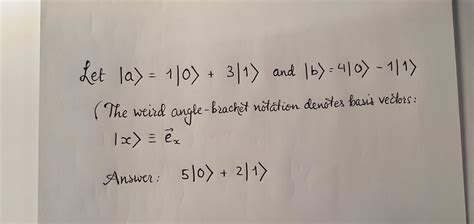 Let |a⟩ = 1|0⟩ + 3|1⟩ and |b⟩ = 4|0⟩ - 1|1⟩
(The weird angle-bracket notation denotes basis vectors:
|x⟩ ≡ e⃗ₓ
Answer: 5|0⟩ + 2|1⟩